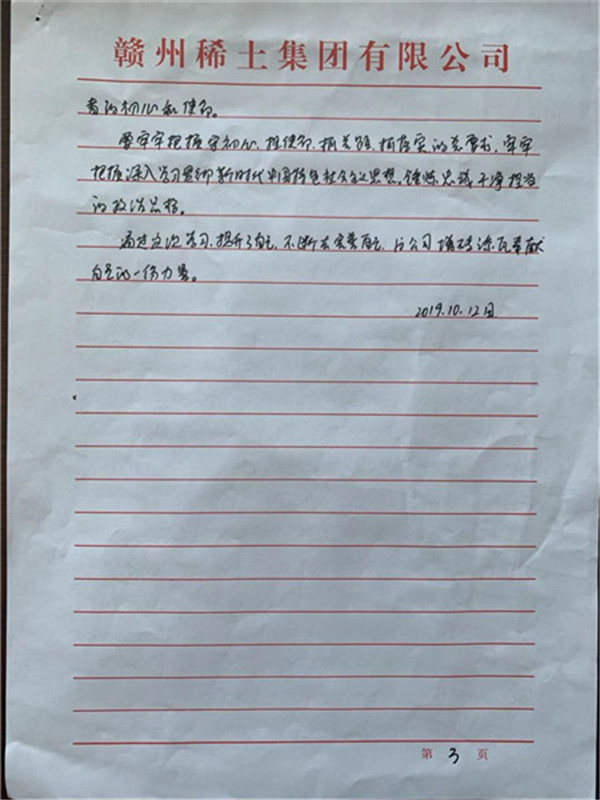 赣州稀土集团有限公司
者的初心和使命。
要牢牢把握守初心,担使命,找差距,抓落实的总要求,牢牢
把握深入学习贯彻新时代中国特色社会主义思想。锤炼忠诚干净担当
的政治品格。
通过这次学习,提升了自己,不断去完善自己,为公司增砖添瓦奉献
自己的一份力量。
2019.10.12日
第 3 页